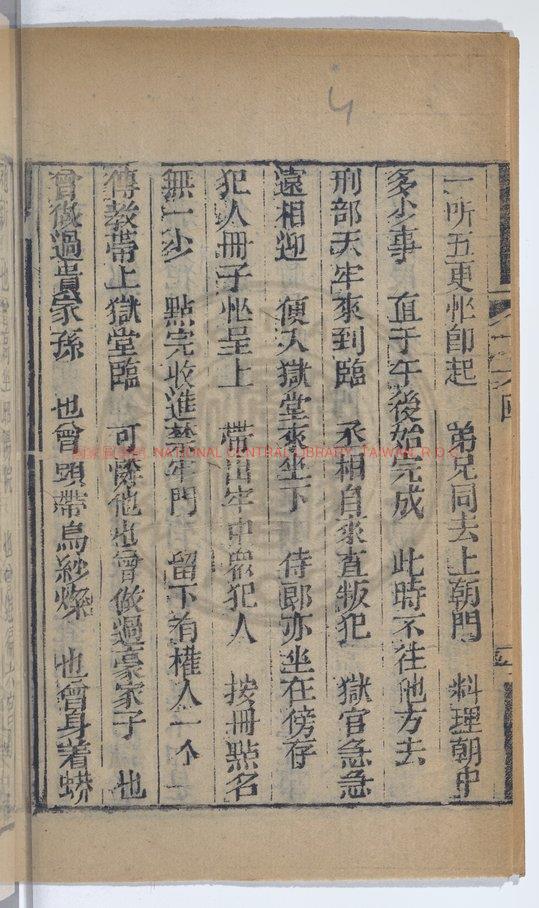 一听五更忙即起　弟兄同去上朝門　料理朝中
多少事　直于午後始完成　此時不往他方去
刑部天牢來到臨　丞相自來查叛犯　獄官急急
遠相迎　便入獄堂來坐下　侍郎亦坐在傍存
犯人冊子忙呈上　帶出牢中衆犯人　按冊點名
無一少　點完收進禁牢門　留下有權人一个
傳教帶上獄堂臨　可憐他也曾做過豪家子　也
曾做過貴家孫　也曾頭帶烏紗燦　也曾身着蟒
國家圖書館 NATIONAL CENTRAL LIBRARY, TAIWAN, R.O.C.
4